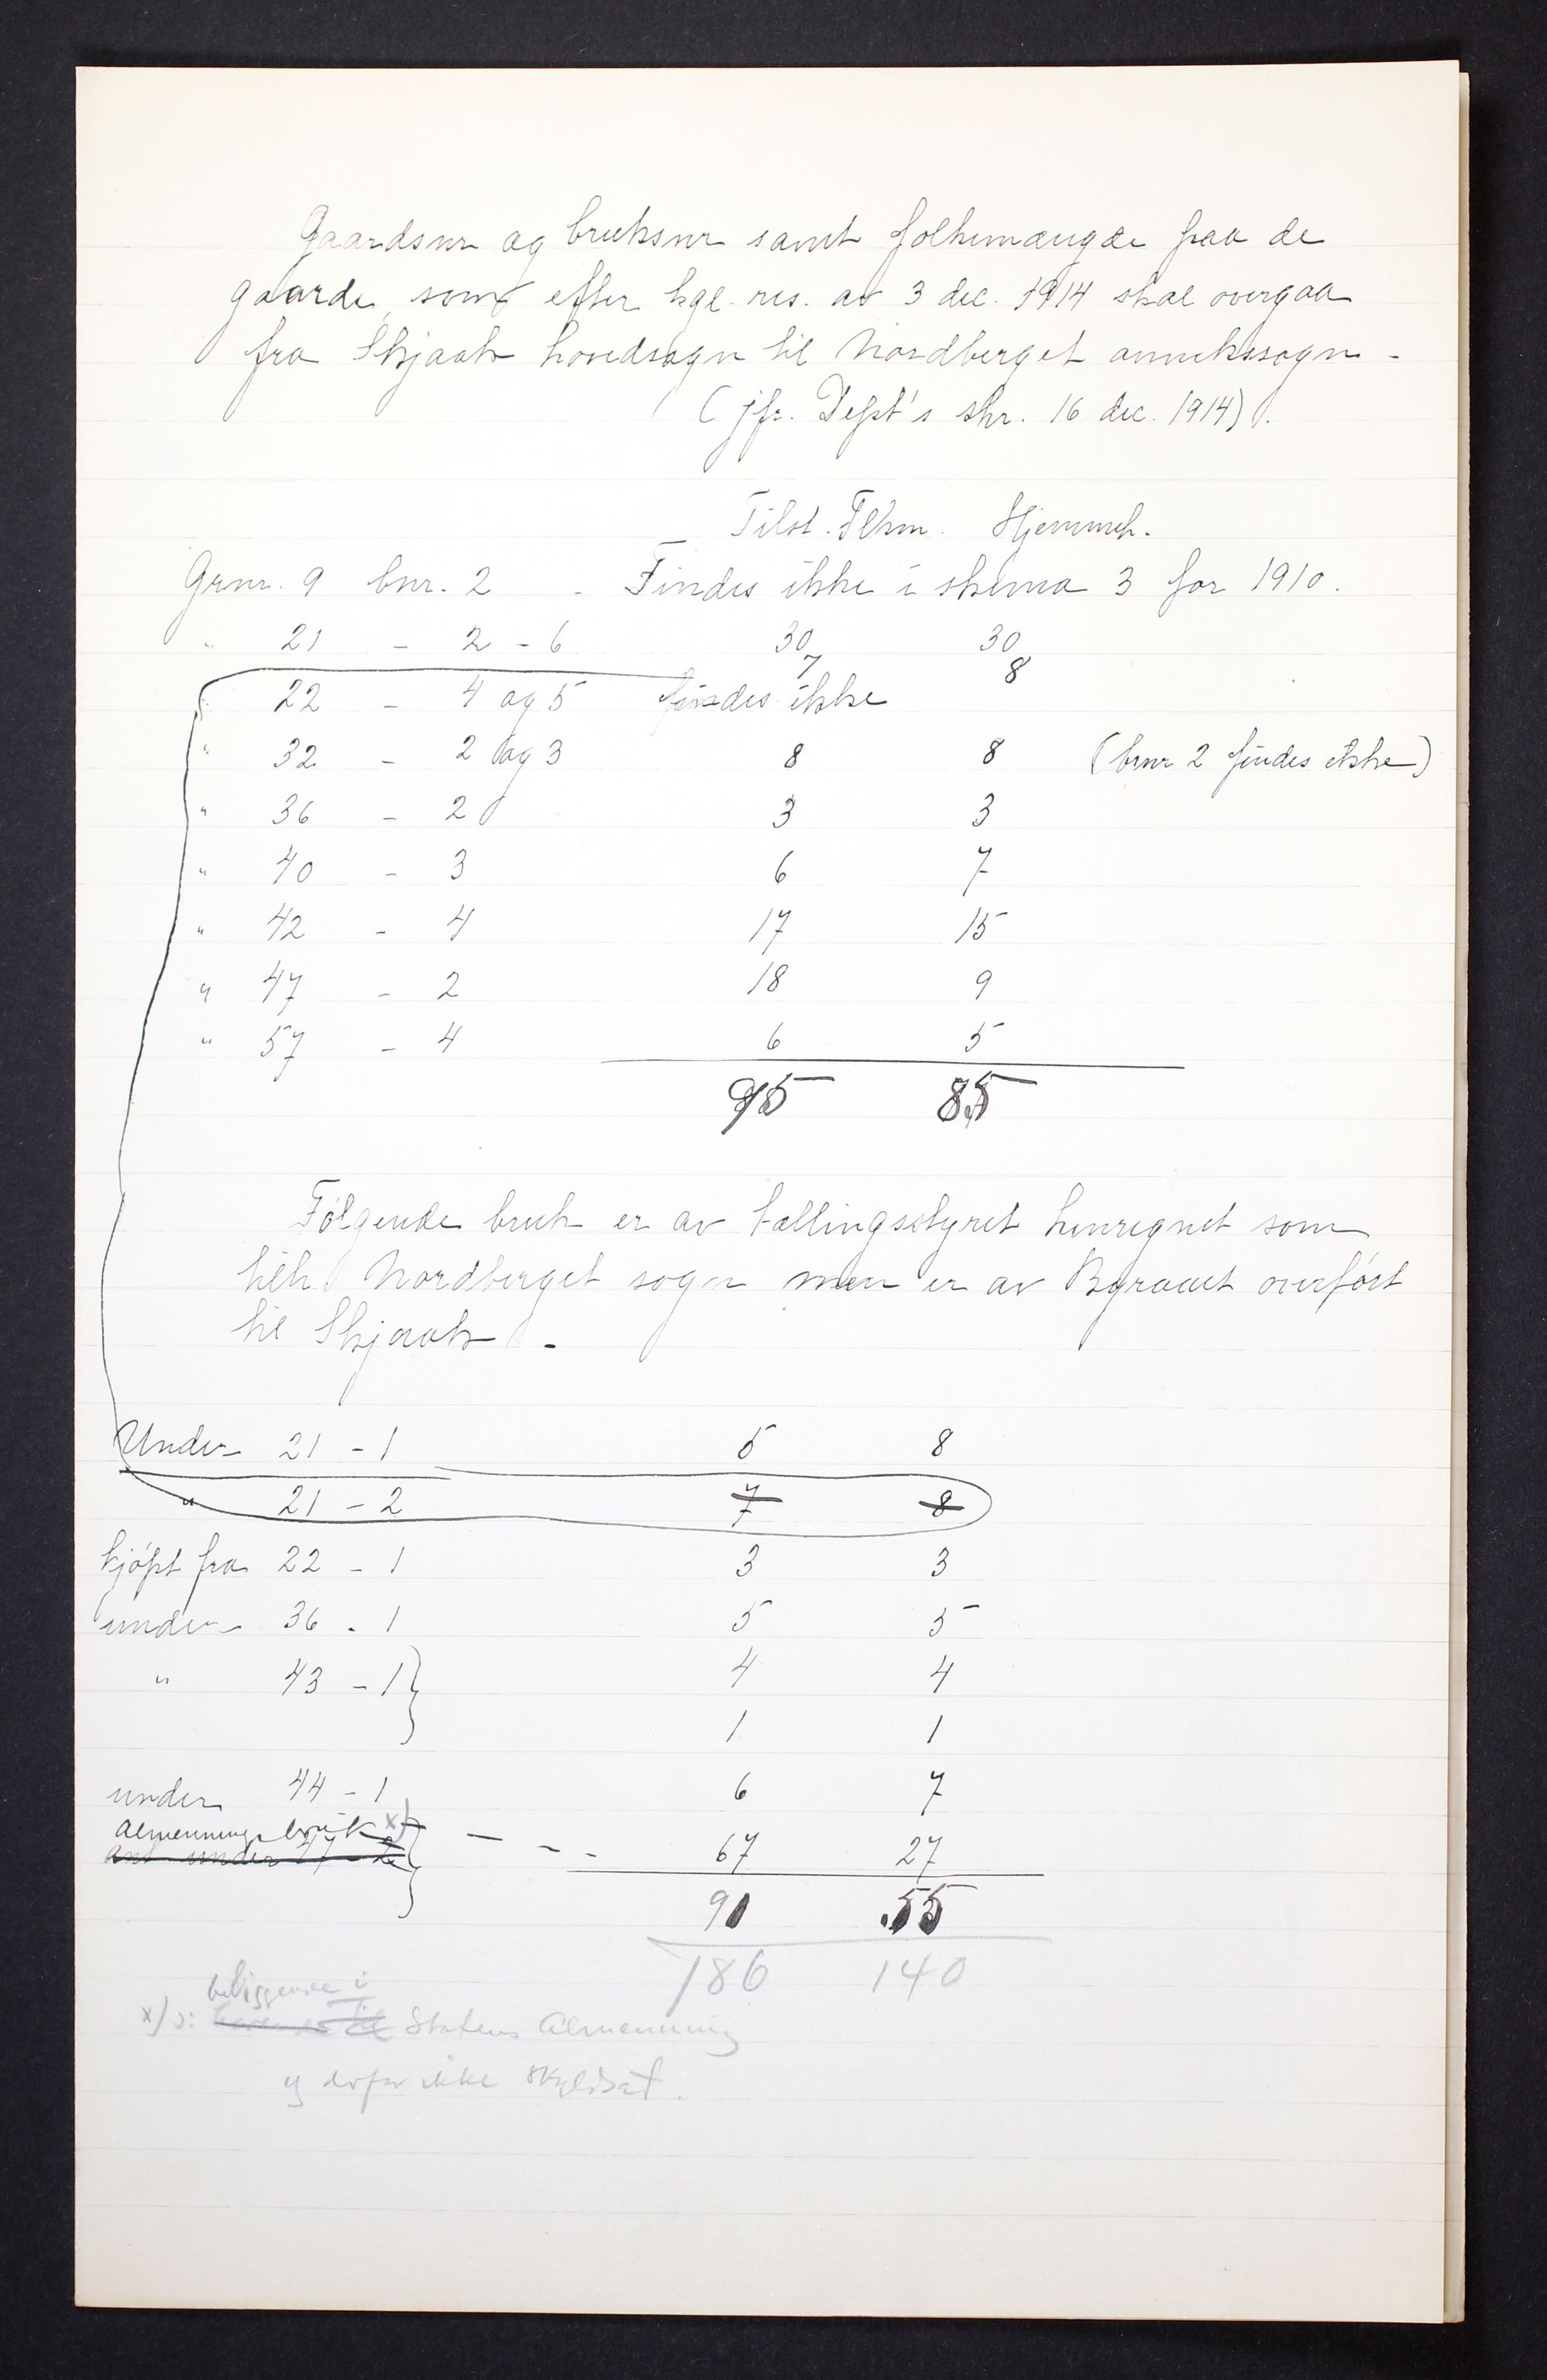 Gaardsnr og bruksnr samt folkemængde paa de
gaarde, som efter kgl. res. av 3 dec. 1914 skal overgaa
fra Skjaak hovedsogn til Nordberget annekssogn -
(jfr. Dept's skr. 16 dec. 1914).
Tilst. Flkm. Hjemmeh.
Grnr. 9 bnr. 2 - Findes ikke i skema 3 for 1910.
" 21 - 2 - 6 30 30
7 8
22 - 4 og 5 findes ikke
" 32 - 2 og 3 8 8 (bnr 2 findes ikke)
" 36 - 2 3 3
" 40 - 3 6 7
" 42 - 4 17 15
" 47 - 2 18 9
" 57 - 4 6 5
95 85
Følgende bruk er av tællingsstyret henregnet som
tilh. Nordberget sogn men er av Byraaet overført
til Skjaak -
Under 21 - 1 5 8
" 21 - 2 7 8
kjøpt fra 22 - 1 3 3
under 36 - 1 5 5
" 43 - 1 } 4 4
1 1
under 44 - 1 6 7
Almenningsbruk x)
under 27 - 2 } - - - 67 27
91 55
186 140
beliggende i
x) ɔ: Statens Almenning
og derfor ikke skyldsat.